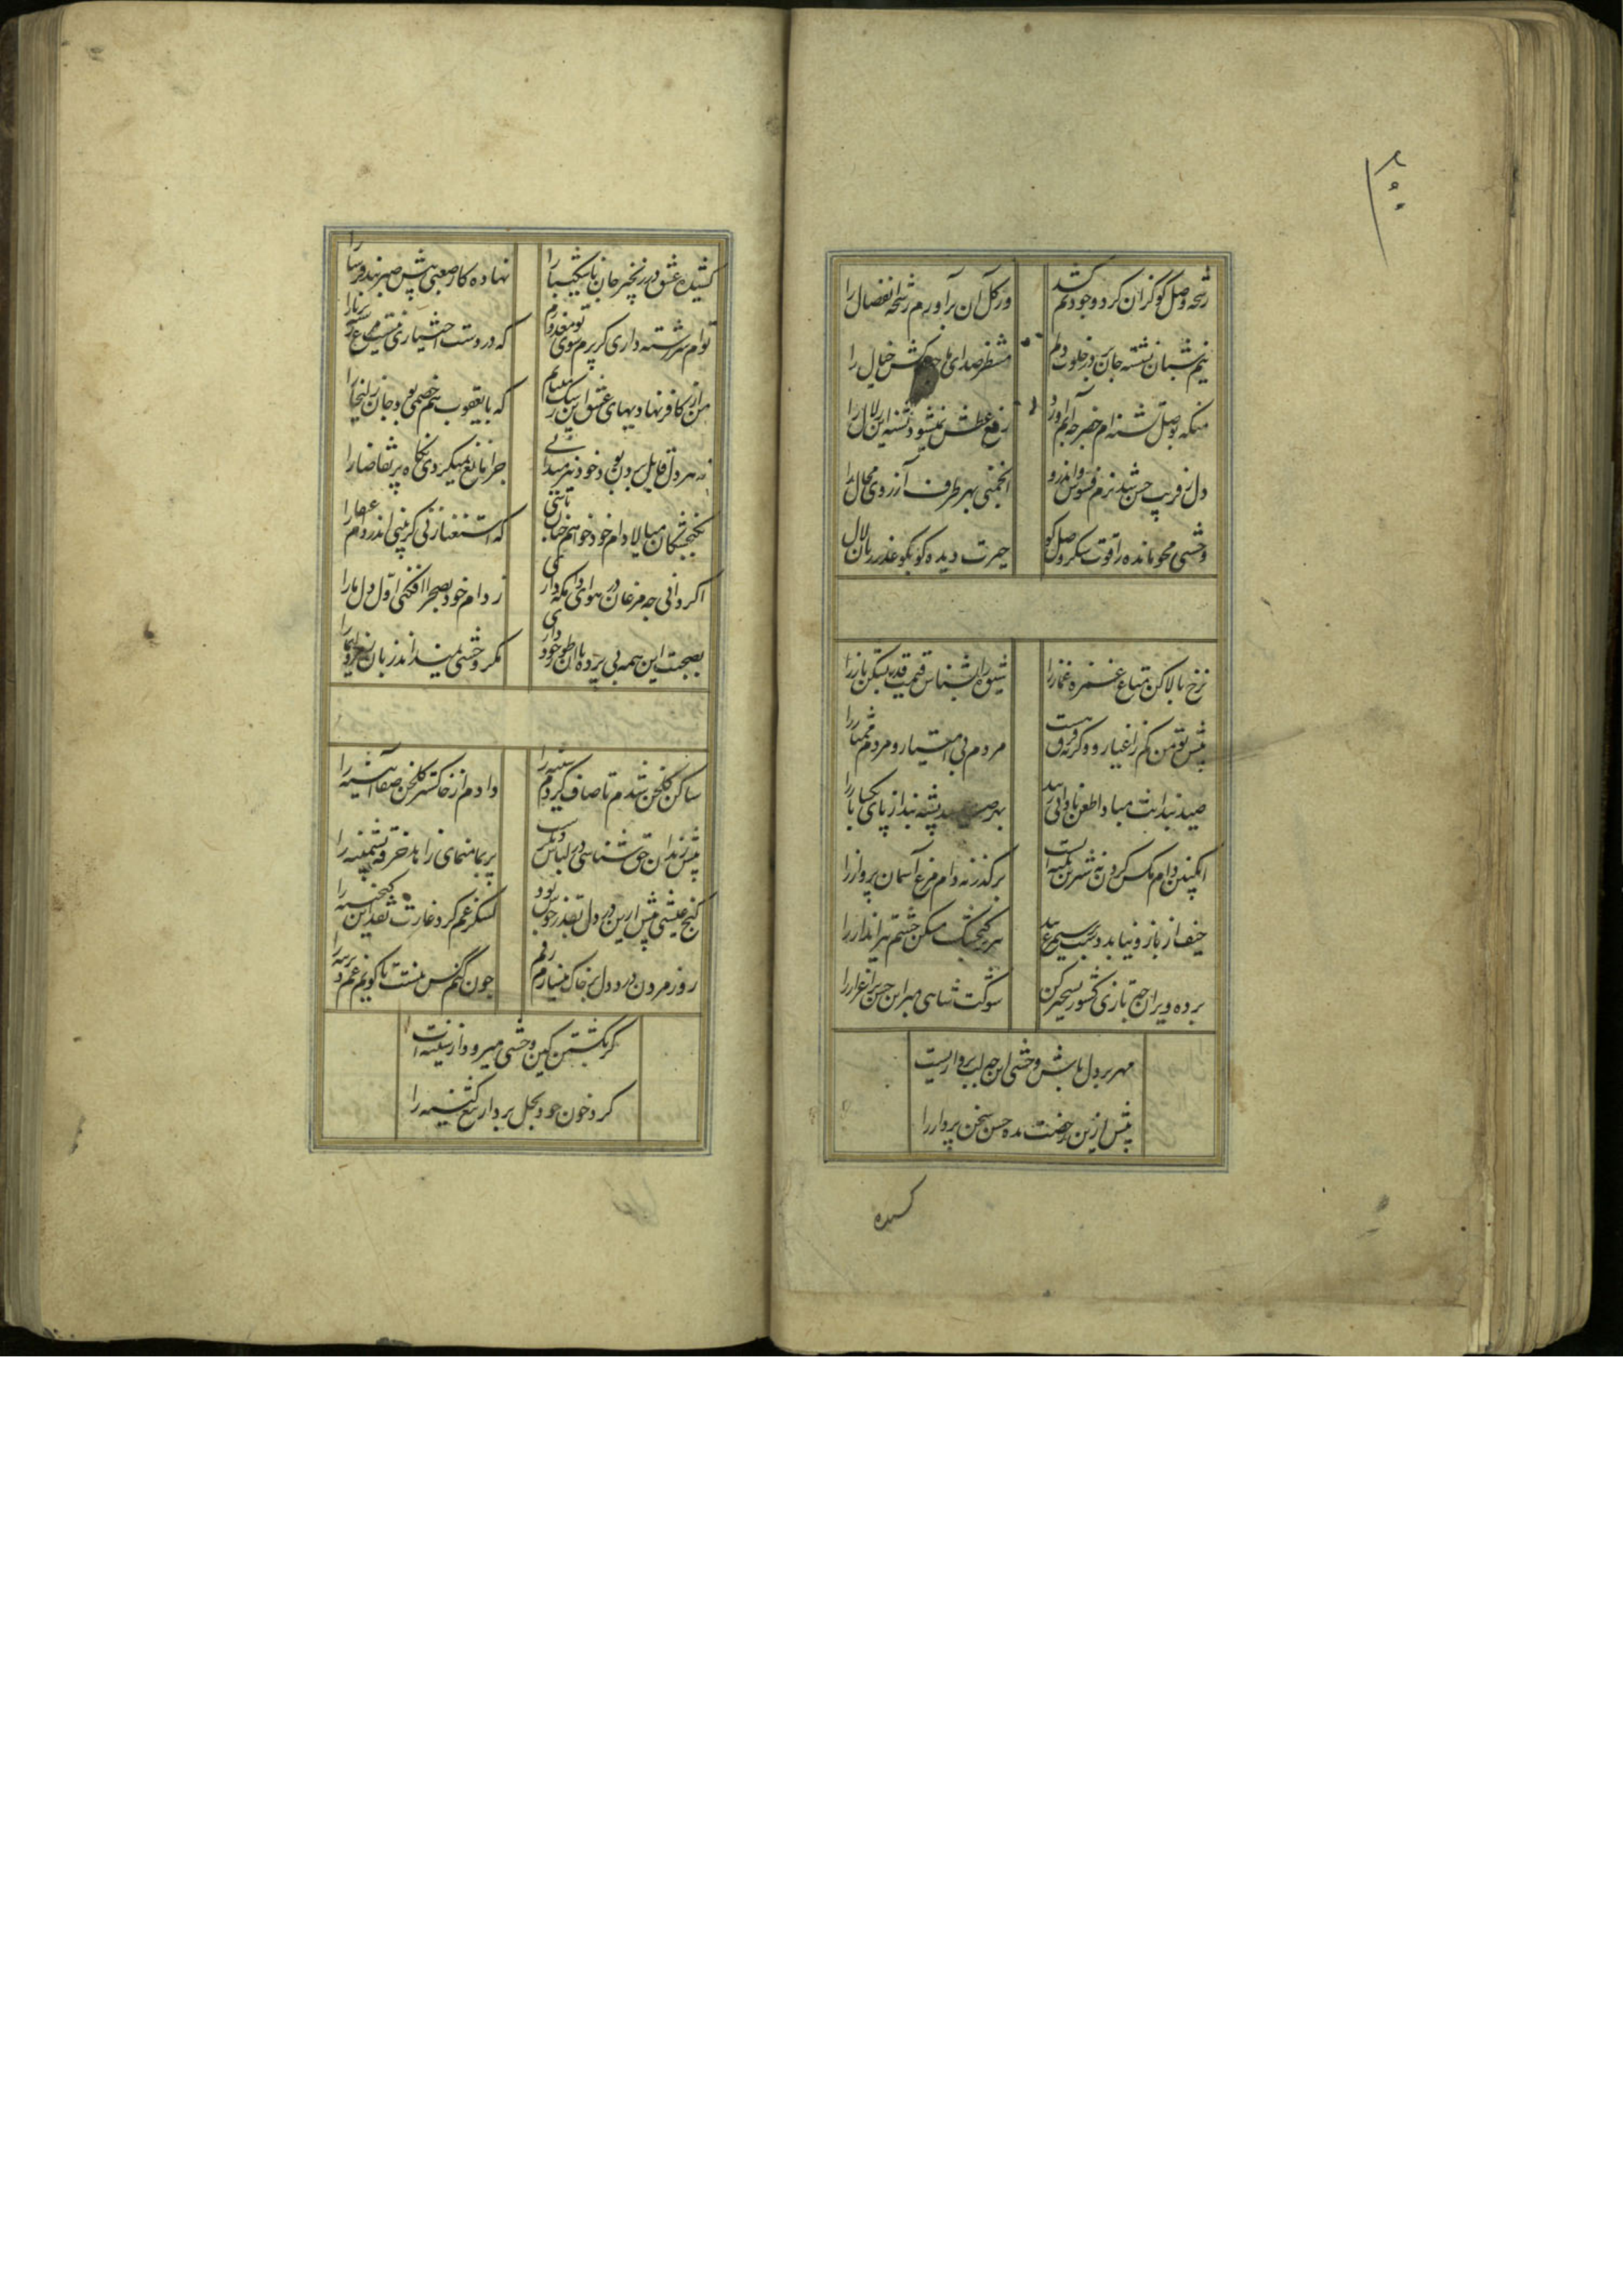 ۱۰۰
رشحه وصل کو کزان کرد وجود نم کشد
ور کل آن برآورم رخنه انفصال را
نیم شبان نشسته جان بر در خلوت دلم
منتظر صدای پا کش خیال را
منکه بوصل تشنه ام خضر چه آبم آورد
رفع عطش نمیشود تشنه این زلال را
دل ز فریب حسن شد بزم فسوس واندرو
انجمنی بهر طرف آرزوی محال را
وحشی محو مانده را قوت شکر وصل کو
حیرت دیده کو بکو عذر زبان لال را
نرخ بالا کن متاع غمزه غماز را
شیوه را بشناس قیمت قدر مشکن ناز را
پیش تو من کم ز اغیارم وکرنه فرق هست
مردم بی امتیاز و مردم ممتاز را
صید بندانت مبادا طعن نادانی زنند
بهر صید پشه بند از پای بکشا باز را
انکبین دام مکس کردن ز شیرین پیشه است
برکذر نه دام مرغ آسمان پرواز را
حیف از بازو نیاید دست بر سیمرغ بند
تیر بر کنجشک مشکن چشم تیرانداز را
بر ده ویران چه تازی کشور تسخیر کن
شوکت شاهی مبر این حسن را
مهر بر دل باش وحشی این چه لب پردازیست
پیش ازین رخصت مده حسن سخن پرداز را
کشیده
کشیده عشق در زنجیر جان ناشکیبا را
نهاده کار صعبی پیش صبر بند فرسا را
توام سررشته داری کر پرم سوی تو معذورم
که در دست اختیاری نیست مرغ رشته بر پا را
من از کافر نهادیهای عشق این رشک میبینم
که با یعقوب هم خصمی بود جان زلیخا را
نه هر دل قابل بردن بود خود نیز میدانی
چرا مانع نمیکردی نکاه پر تقاضا را
بکنجشکان میالا دام خود خواهم چنان باشی
که استغنا زنی کر بینی اندر دام عنقا را
اکر دانی چه مرغان در هوای دامکه داری
ز دام خود بصحرا افکنی اول دل ما را
نصیحت این همه بی پرده با آن طور خود داری
مکر وحشی نمیداند زبان رمز و ایما را
ساکن کلخن شدم تا صاف کردم سینه را
دادم از خاکستر کلخن صفا آیینه را
پیش رندان حق شناسی در لباس دیکر است
پر بما منمای زاهد خرقه پشمینه را
کنج عیشی پیش ازین در دل بقدر خویش بود
لشکر غم کرد غارت نقد این کنجینه را
روز مردن درد دل بر خاک میسازم رقم
چون کنم کس نیست تا کویم غم دیرینه را
کر بکشتن کین وحشی میرود از سینه ات
کرد خون خود بحل بردار تیغ کینه را